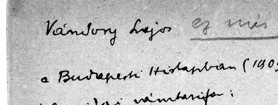 Vándory Lajos ez már
a Budapesti Hirlapban (190
vámtarifa: